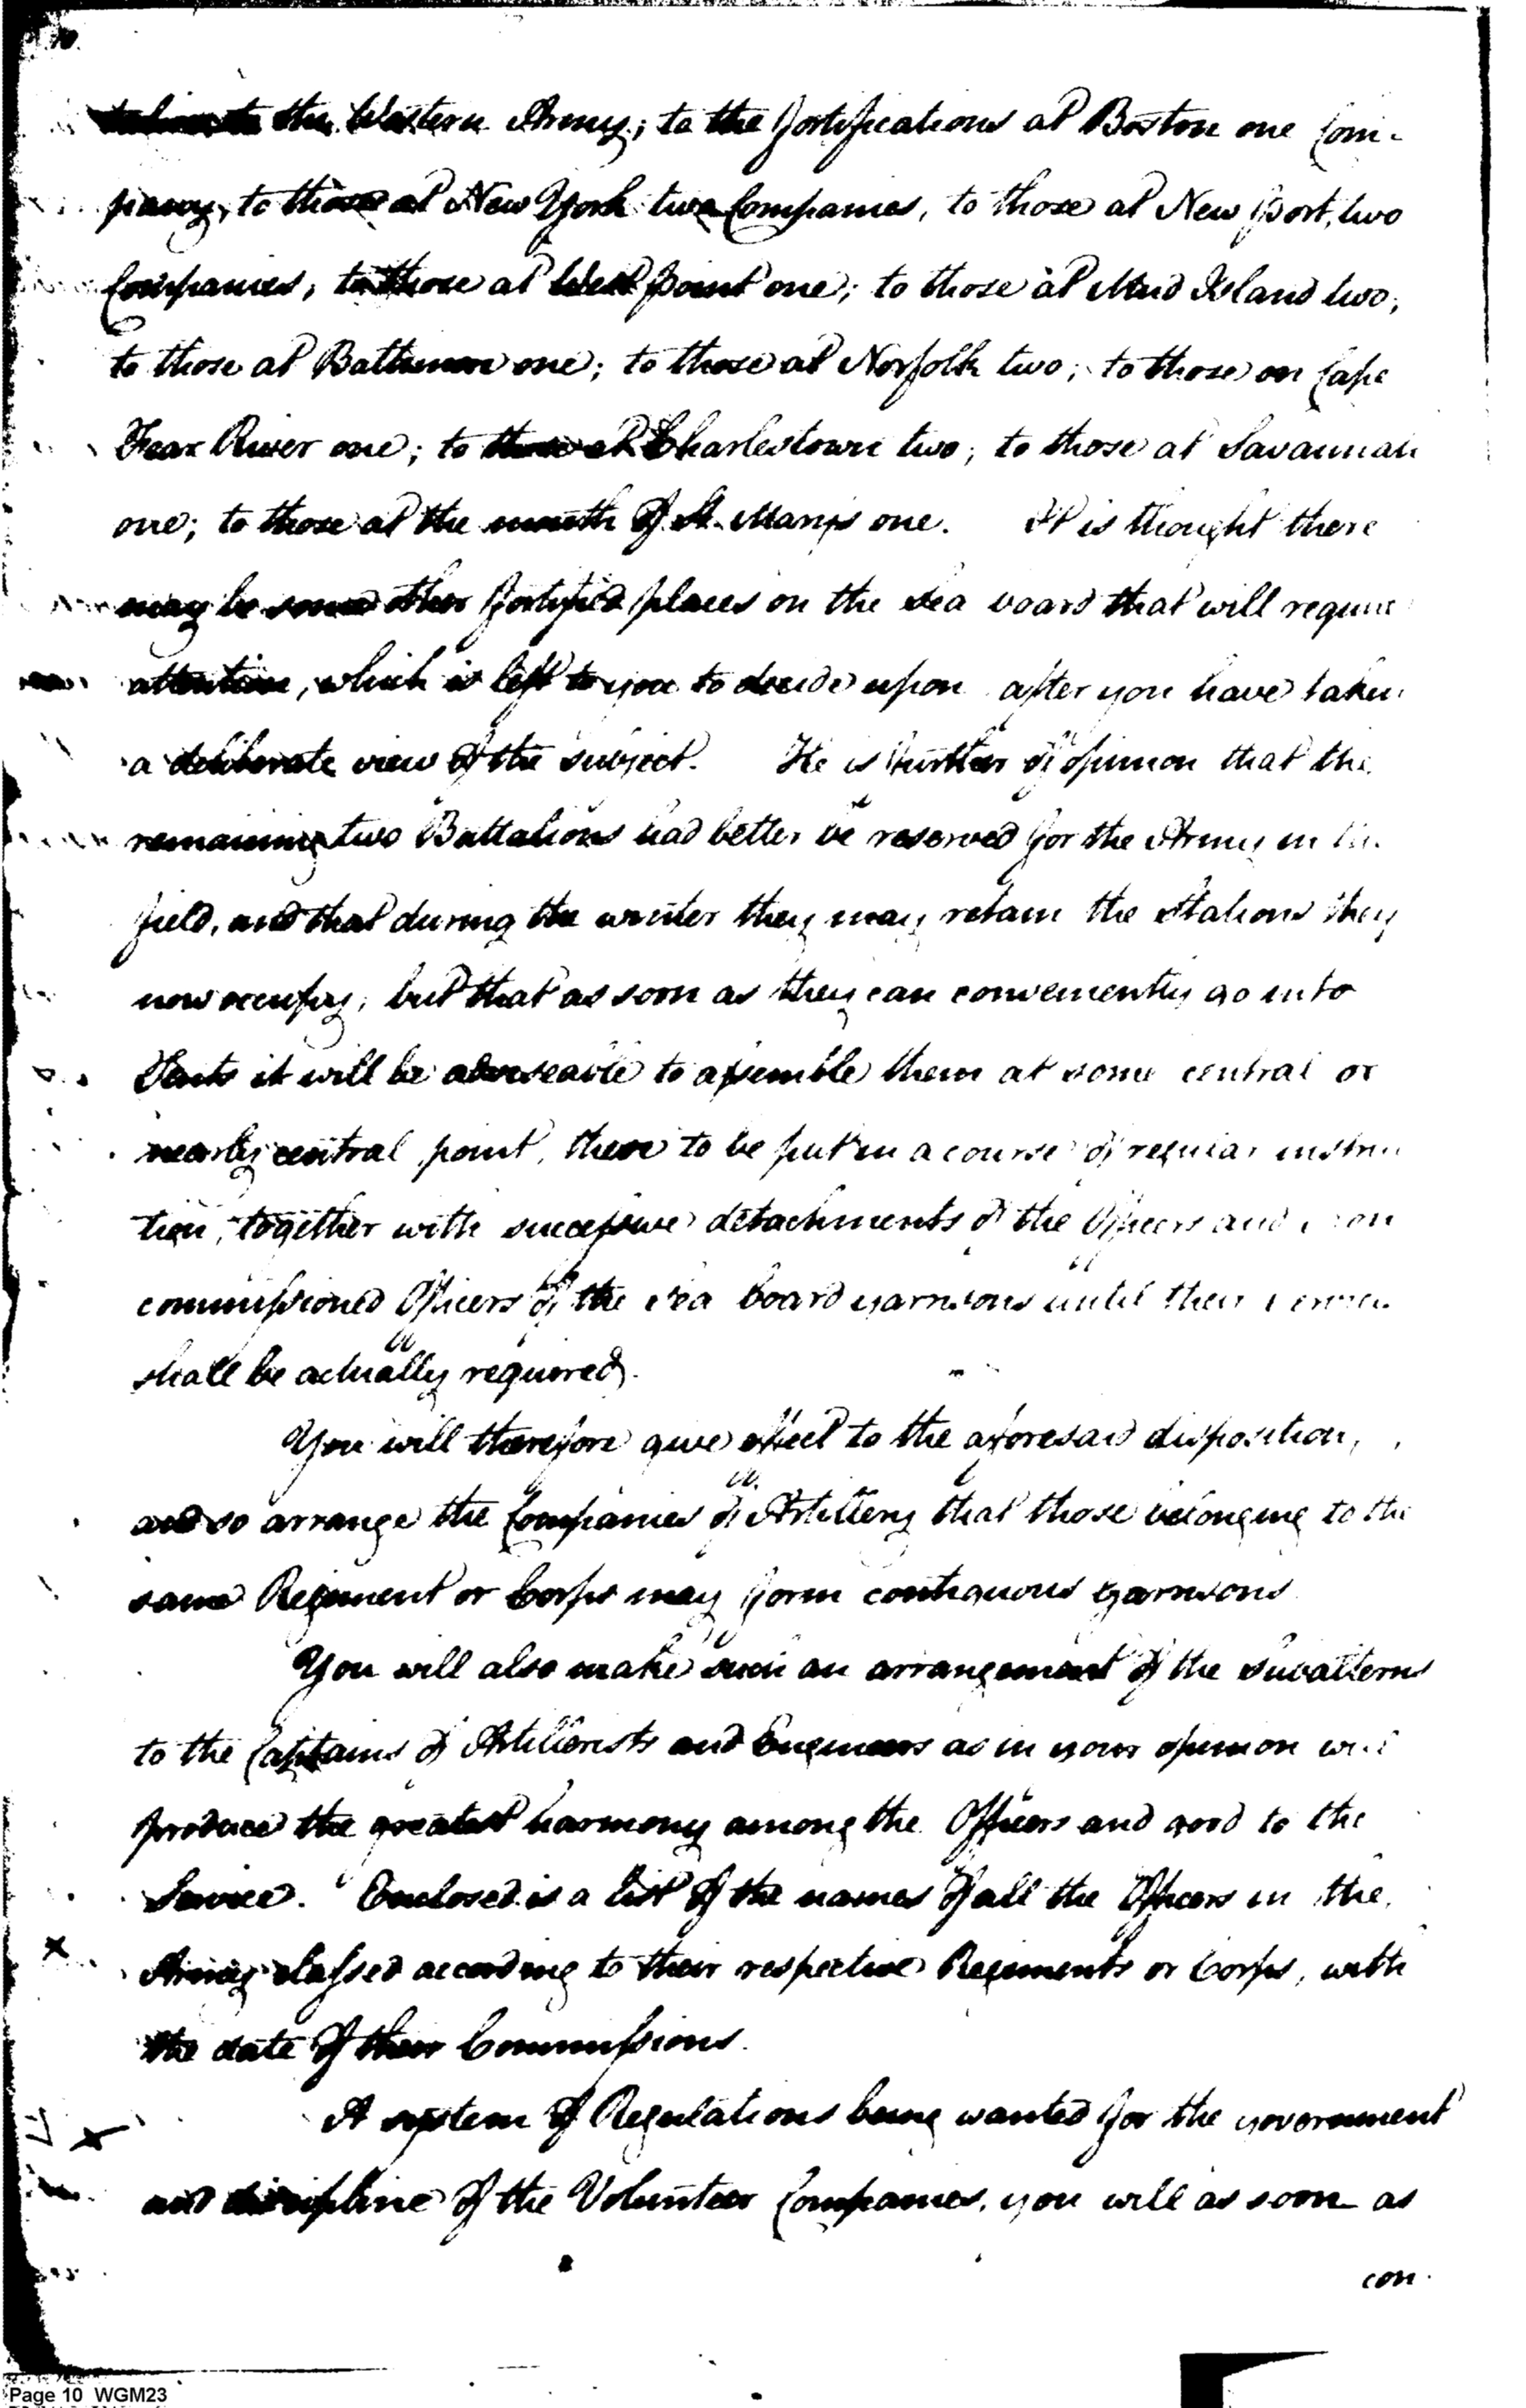 to the Western Army; to the fortifications at Boston one Com-
pany, to those at New York two Companies, to those at New port, two
Companies, to those at West point one; to those at Mud Island two,
to those at Baltimore one; to those at Norfolk two; to those on Cape
Fear River one; to those at Charlestown two; to those at Savannah
one; to those at the mouth of St. Marys one. It is thought there
may be some other fortified places on the sea board that will require
attention, which is left to you to decide upon after you have taken
a deliberate view of the subject. He is further of opinion that the
remaining two Battalions had better be reserved for the Army in the
field, and that during the winter they may retain the Stations they
now occupy, but that as soon as they can conveniently go into
Tents it will be adviseable to assemble them at some central or
nearly central point, there to be put in a course of regular instruc
tion, together with successive detachments of the Officers and non
commissioned Officers of the sea board garrisons until their
shall be actually required.
You will therefore give effect to the aforesaid disposition,
and so arrange the Companies of Artillery that those belonging to the
same Regiment or Corps may form contiguous garrisons
You will also make such an arrangement of the subalterns
to the Captains of Artillerists and Engineers as in your opinion will
produce the greatest harmony among the Officers and good to the
Service. Enclosed is a list of the names of all the Officers in the
Army classed according to their respective Regiments or Corps, with
the date of their Commissions.
A system of Regulations being wanted for the government
and discipline of the Volunteer Companies, you will as soon as
con
Page 10 WGM23